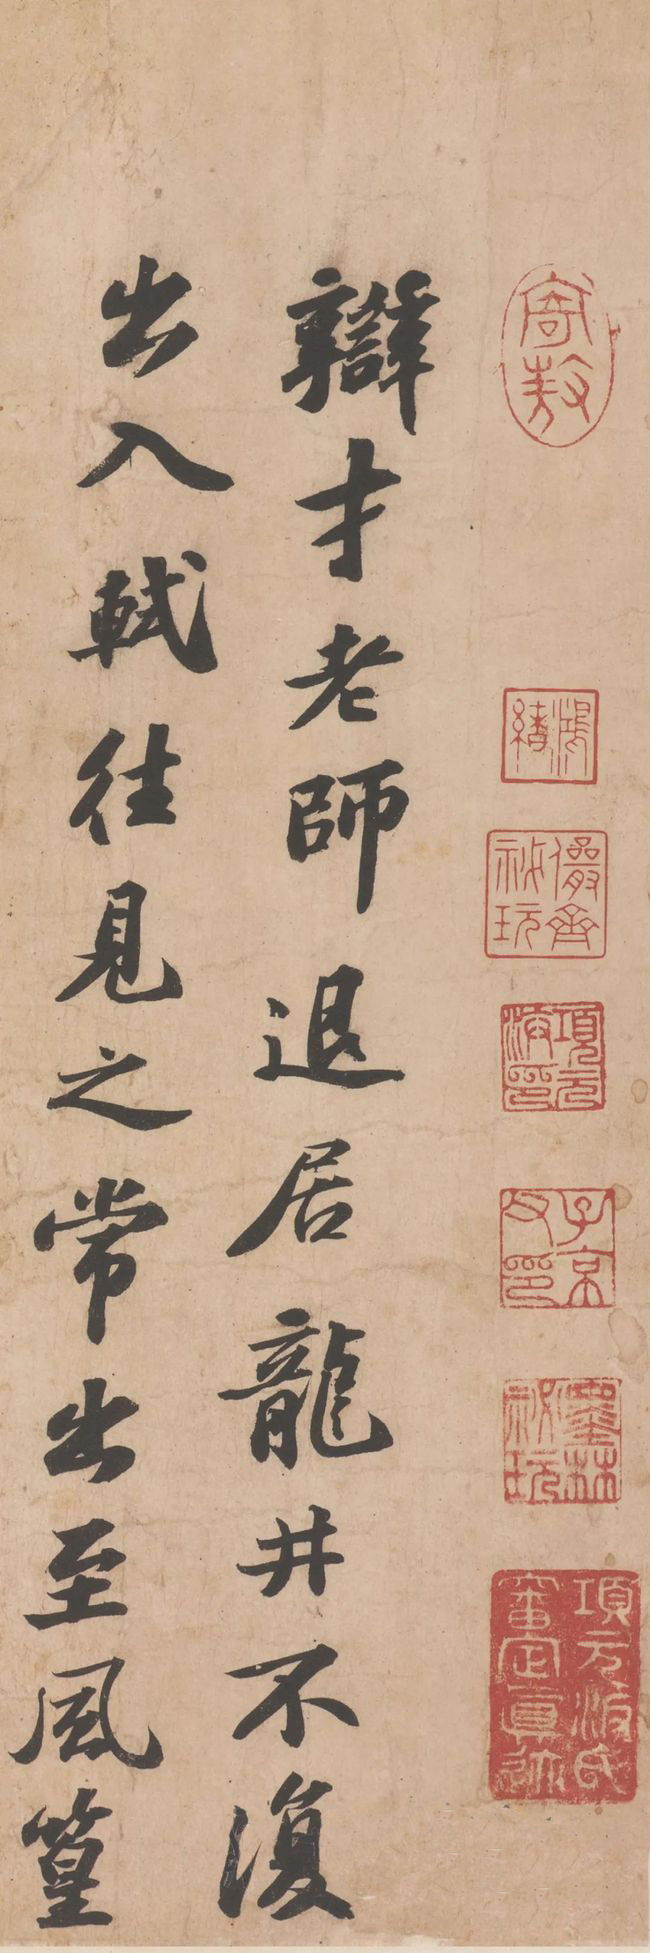 寄敖
鴻緒
儼齋秘玩
項元汴印
子京父印
墨林秘玩
項元汴氏審定真跡
辯才老師退居龍井不復
出入軾往見之常出至風篁